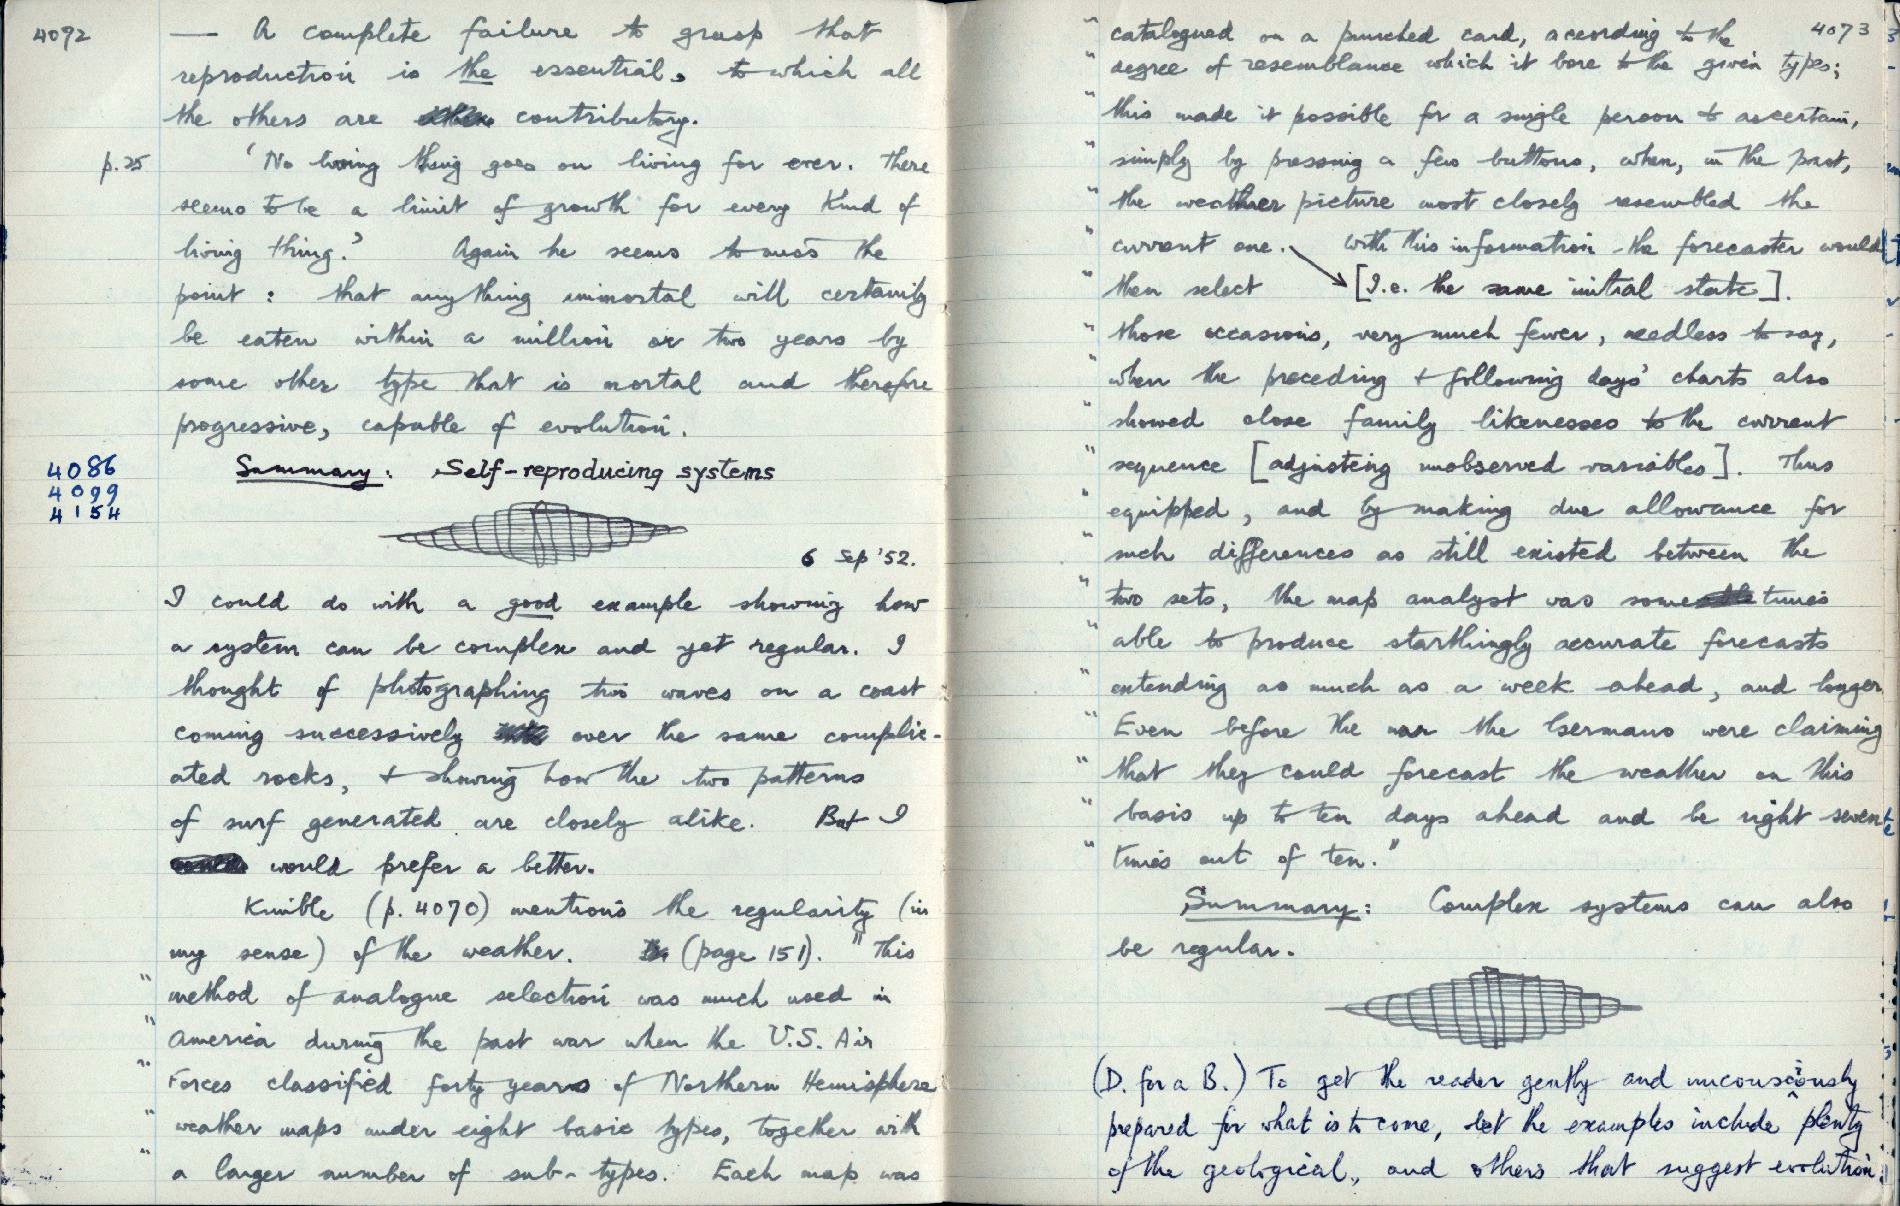 4092
— A complete failure to grasp that
reproduction is the essential, to which all
the others are contributory.
p.25 'No living thing goes on living for ever. There
seems to be a limit of growth for every kind of
living thing.' Again he seems to miss the
point: that anything immortal will certainly
be eaten within a million or two years by
some other type that is mortal and therefore
progressive, capable of evolution.
Summary: Self-reproducing systems
4086
4099
4154
6 Sep '52.
I could do with a good example showing how
a system can be complex and yet regular. I
thought of photographing two waves on a coast
coming successively over the same complic-
ated rocks, + showing how the two patterns
of surf generated are closely alike. But I
would prefer a better.
Kimble (p. 4070) mentions the regularity (in
my sense) of the weather. (page 151). "This
" method of analogue selection was much used in
" America during the past war when the U.S. Air
" Forces classified forty years of Northern Hemisphere
" weather maps under eight basic types, together with
" a larger number of sub-types. Each map was
4073
" catalogued on a punched card, according to the
" degree of resemblance which it bore to the given types;
" this made it possible for a single person to ascertain,
" simply by pressing a few buttons, when, in the past,
" the weather picture most closely resembled the
" current one. With this information the forecaster would
" then select [I.e. the same initial state].
" those occasions, very much fewer, needless to say,
" when the preceding + following days' charts also
" showed close family likenesses to the current
" sequence [adjusting unobserved variables]. Thus
" equipped, and by making due allowance for
" such differences as still existed between the
" two sets, the map analyst was sometimes
" able to produce startlingly accurate forecasts
" extending as much as a week ahead, and longer
" Even before the war the Germans were claiming
" that they could forecast the weather on this
" basis up to ten days ahead and be right seven
" times out of ten."
Summary: Complex systems can also
be regular.
(D. for a B.) To get the reader gently and unconsciously
prepared for what is to come, let the examples include plenty
of the geological, and others that suggest evolution.